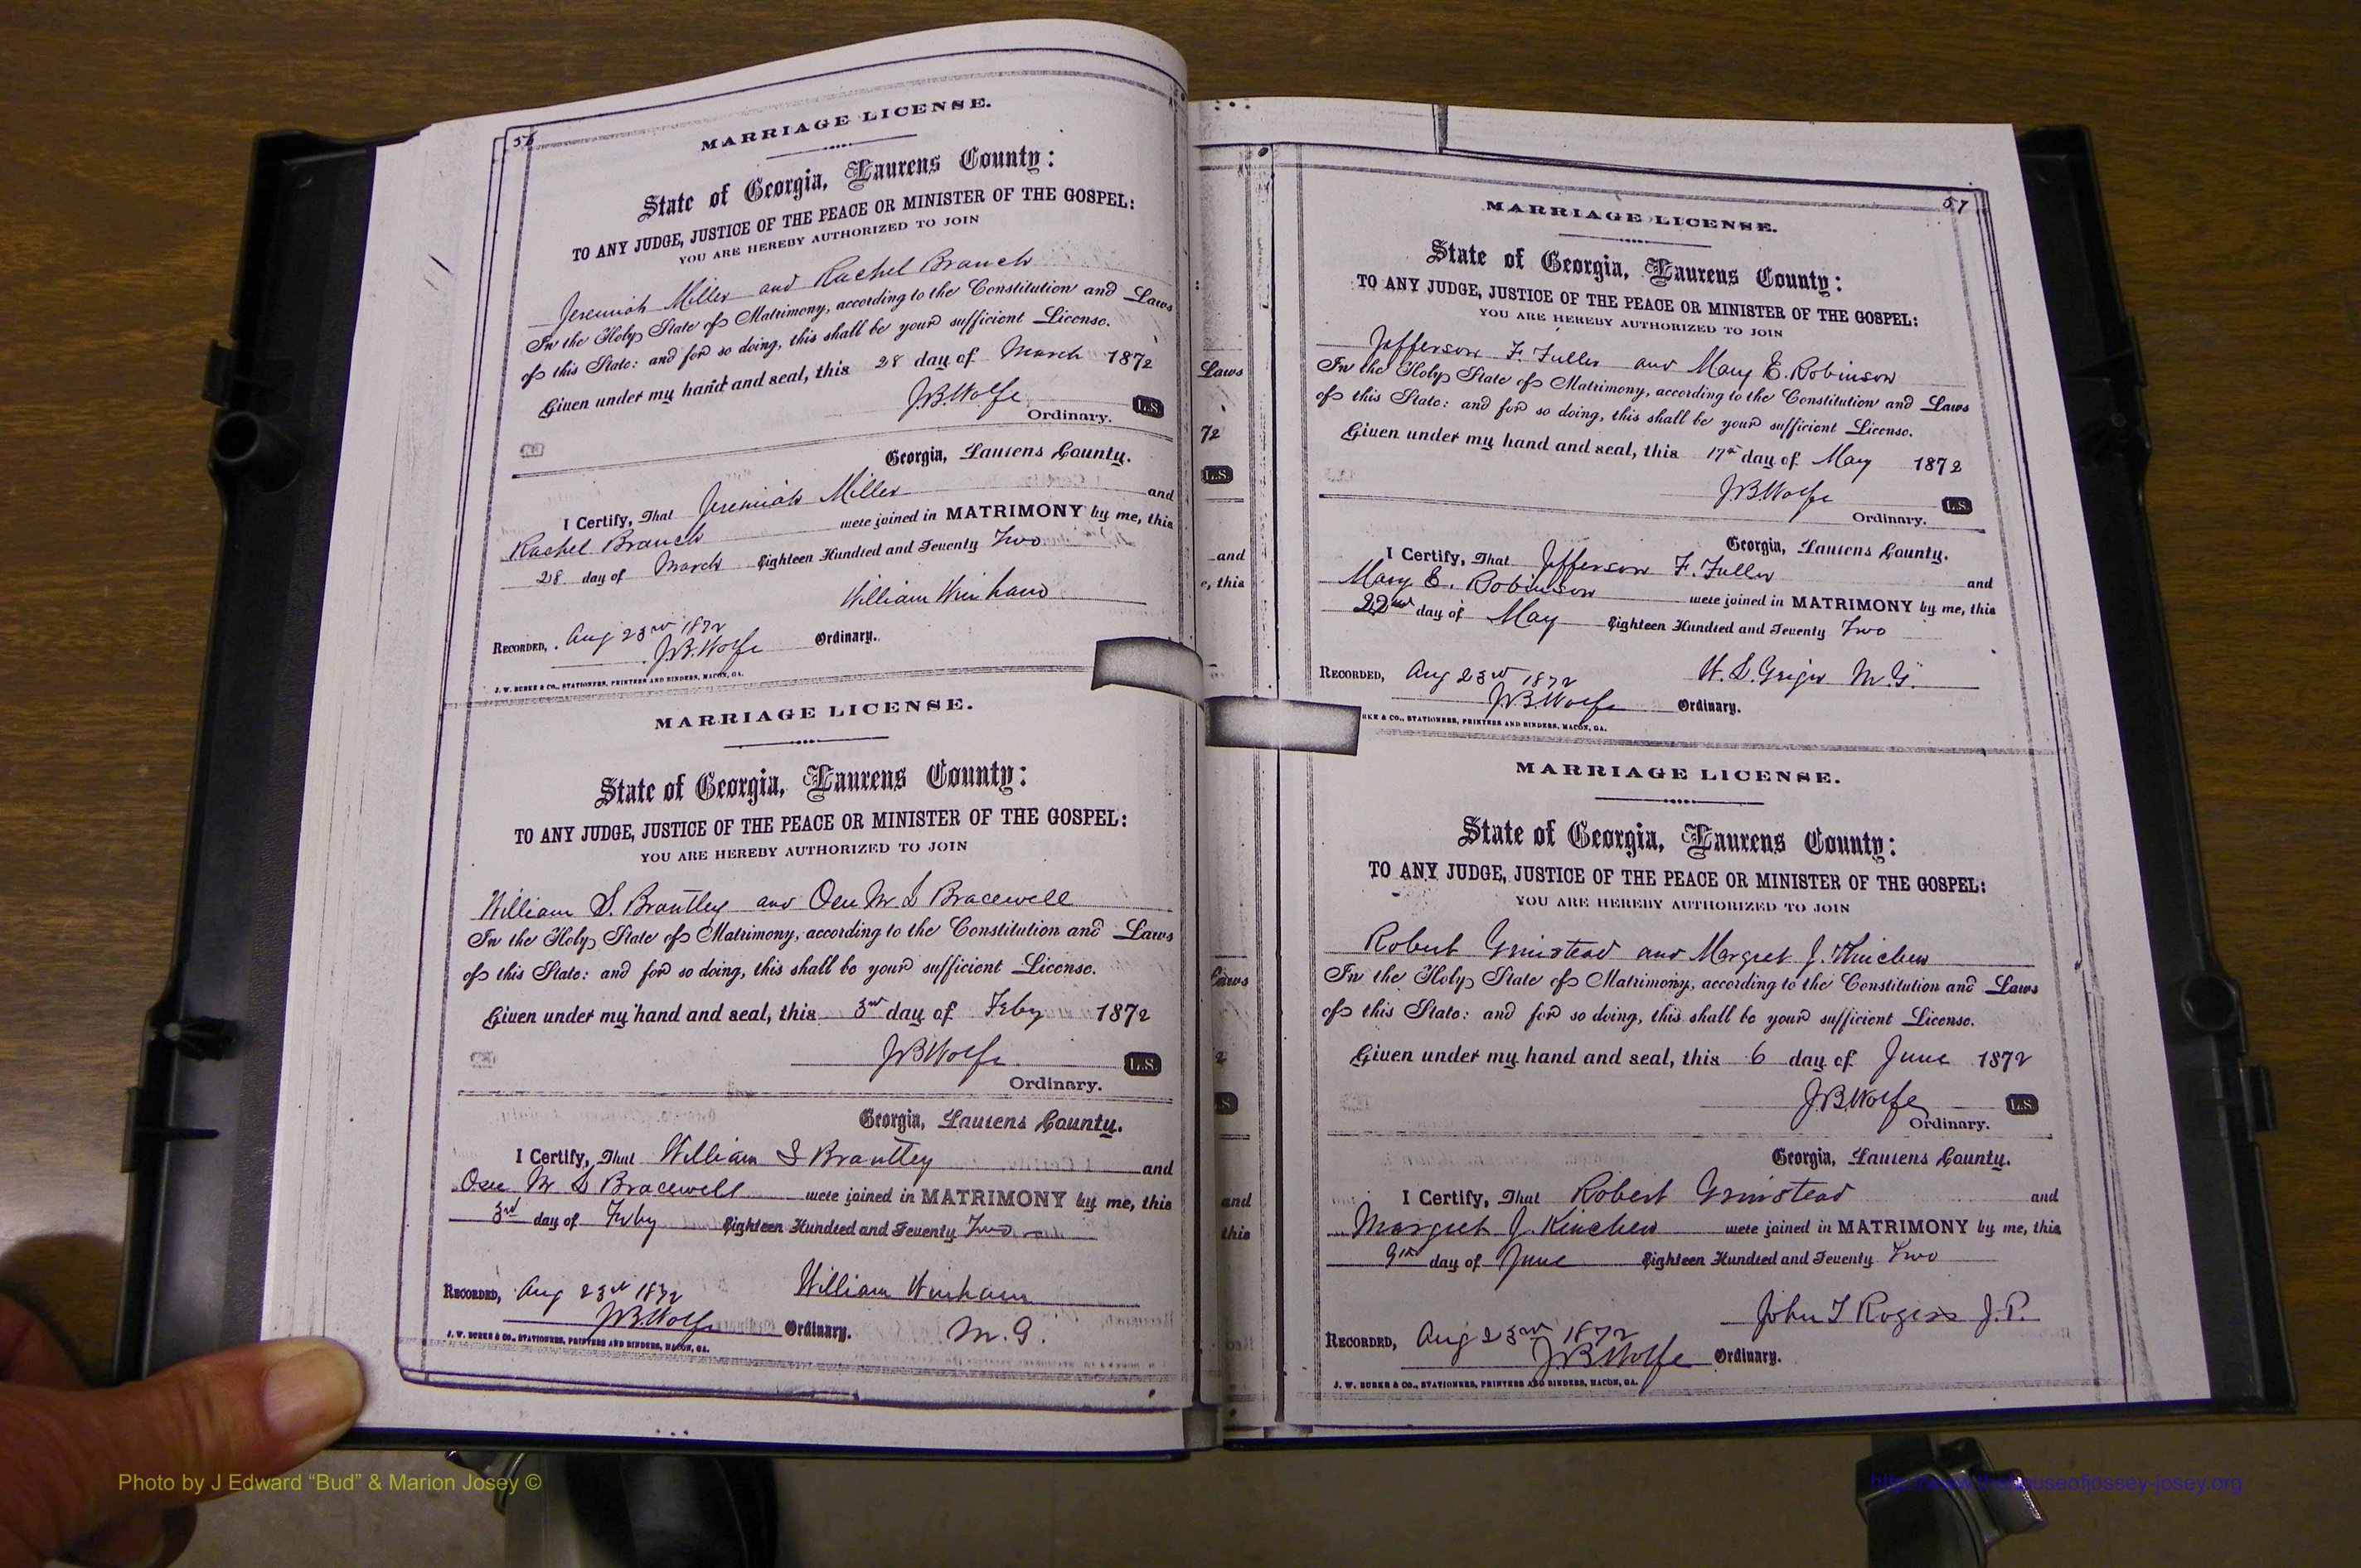 MARRIAGE LICENSE.
State of Georgia, Laurens County:
TO ANY JUDGE, JUSTICE OF THE PEACE OR MINISTER OF THE GOSPEL:
YOU ARE HEREBY AUTHORIZED TO JOIN
Jeremiah Miller and Rachel Branch
In the Holy State of Matrimony, according to the Constitution and Laws
of this State: and for so doing, this shall be your sufficient License.
Given under my hand and seal, this 28 day of March 1872
J.B. Wolfe L.S.
Ordinary.
Georgia, Laurens County.
I Certify, That Jeremiah Miller and
Rachel Branch were joined in MATRIMONY by me, this
28 day of March Eighteen Hundred and Seventy Two
William
RECORDED, Aug 23rd 1872
J.B. Wolfe Ordinary.
J. W. BURKE & CO., STATIONERS, PRINTERS AND BINDERS, MACON, GA.
MARRIAGE LICENSE.
State of Georgia, Laurens County:
TO ANY JUDGE, JUSTICE OF THE PEACE OR MINISTER OF THE GOSPEL:
YOU ARE HEREBY AUTHORIZED TO JOIN
William S. Brantley and M S Bracewell
In the Holy State of Matrimony, according to the Constitution and Laws
of this State: and for so doing, this shall be your sufficient License.
Given under my hand and seal, this 3rd day of Feby 1872
JB Wolfe L.S.
Ordinary.
Georgia, Laurens County.
I Certify, That William S Brantley and
M S Bracewell were joined in MATRIMONY by me, this
3rd day of Feby Eighteen Hundred and Seventy Two
RECORDED, Aug 23rd 1872 William
JB Wolfe Ordinary. M.G.
J. W. BURKE & CO., STATIONERS, PRINTERS AND BINDERS, MACON, GA.
Laws
72
L.S.
and
e, this
Laws
2
and
this
57
MARRIAGE LICENSE.
State of Georgia, Laurens County:
TO ANY JUDGE, JUSTICE OF THE PEACE OR MINISTER OF THE GOSPEL:
YOU ARE HEREBY AUTHORIZED TO JOIN
Jefferson F. Fuller and Mary E. Robinson
In the Holy State of Matrimony, according to the Constitution and Laws
of this State: and for so doing, this shall be your sufficient License.
Given under my hand and seal, this 17th day of May 1872
JB Wolfe L.S.
Ordinary.
Georgia, Laurens County.
I Certify, That Jefferson F. Fuller and
Mary E. Robinson were joined in MATRIMONY by me, this
22nd day of May Eighteen Hundred and Seventy Two
RECORDED, Aug 23rd 1872 M.G.
JB Wolfe Ordinary.
RKE & CO., STATIONERS, PRINTERS AND BINDERS, MACON, GA.
MARRIAGE LICENSE.
State of Georgia, Laurens County:
TO ANY JUDGE, JUSTICE OF THE PEACE OR MINISTER OF THE GOSPEL:
YOU ARE HEREBY AUTHORIZED TO JOIN
Robert Grinstead and Margret J. Kinchen
In the Holy State of Matrimony, according to the Constitution and Laws
of this State: and for so doing, this shall be your sufficient License.
Given under my hand and seal, this 6 day of June 1872
JB Wolfe L.S.
Ordinary.
Georgia, Laurens County.
I Certify, That Robert Grinstead and
Margret J. Kinchen were joined in MATRIMONY by me, this
9th day of June Eighteen Hundred and Seventy Two
John T Rogers J.P.
RECORDED, Aug 23rd 1872
J.B. Wolfe Ordinary.
J. W. BURKE & CO., STATIONERS, PRINTERS AND BINDERS, MACON, GA.
Photo by J Edward “Bud” & Marion Josey ©
http://www.thehouseofjossey-josey.org